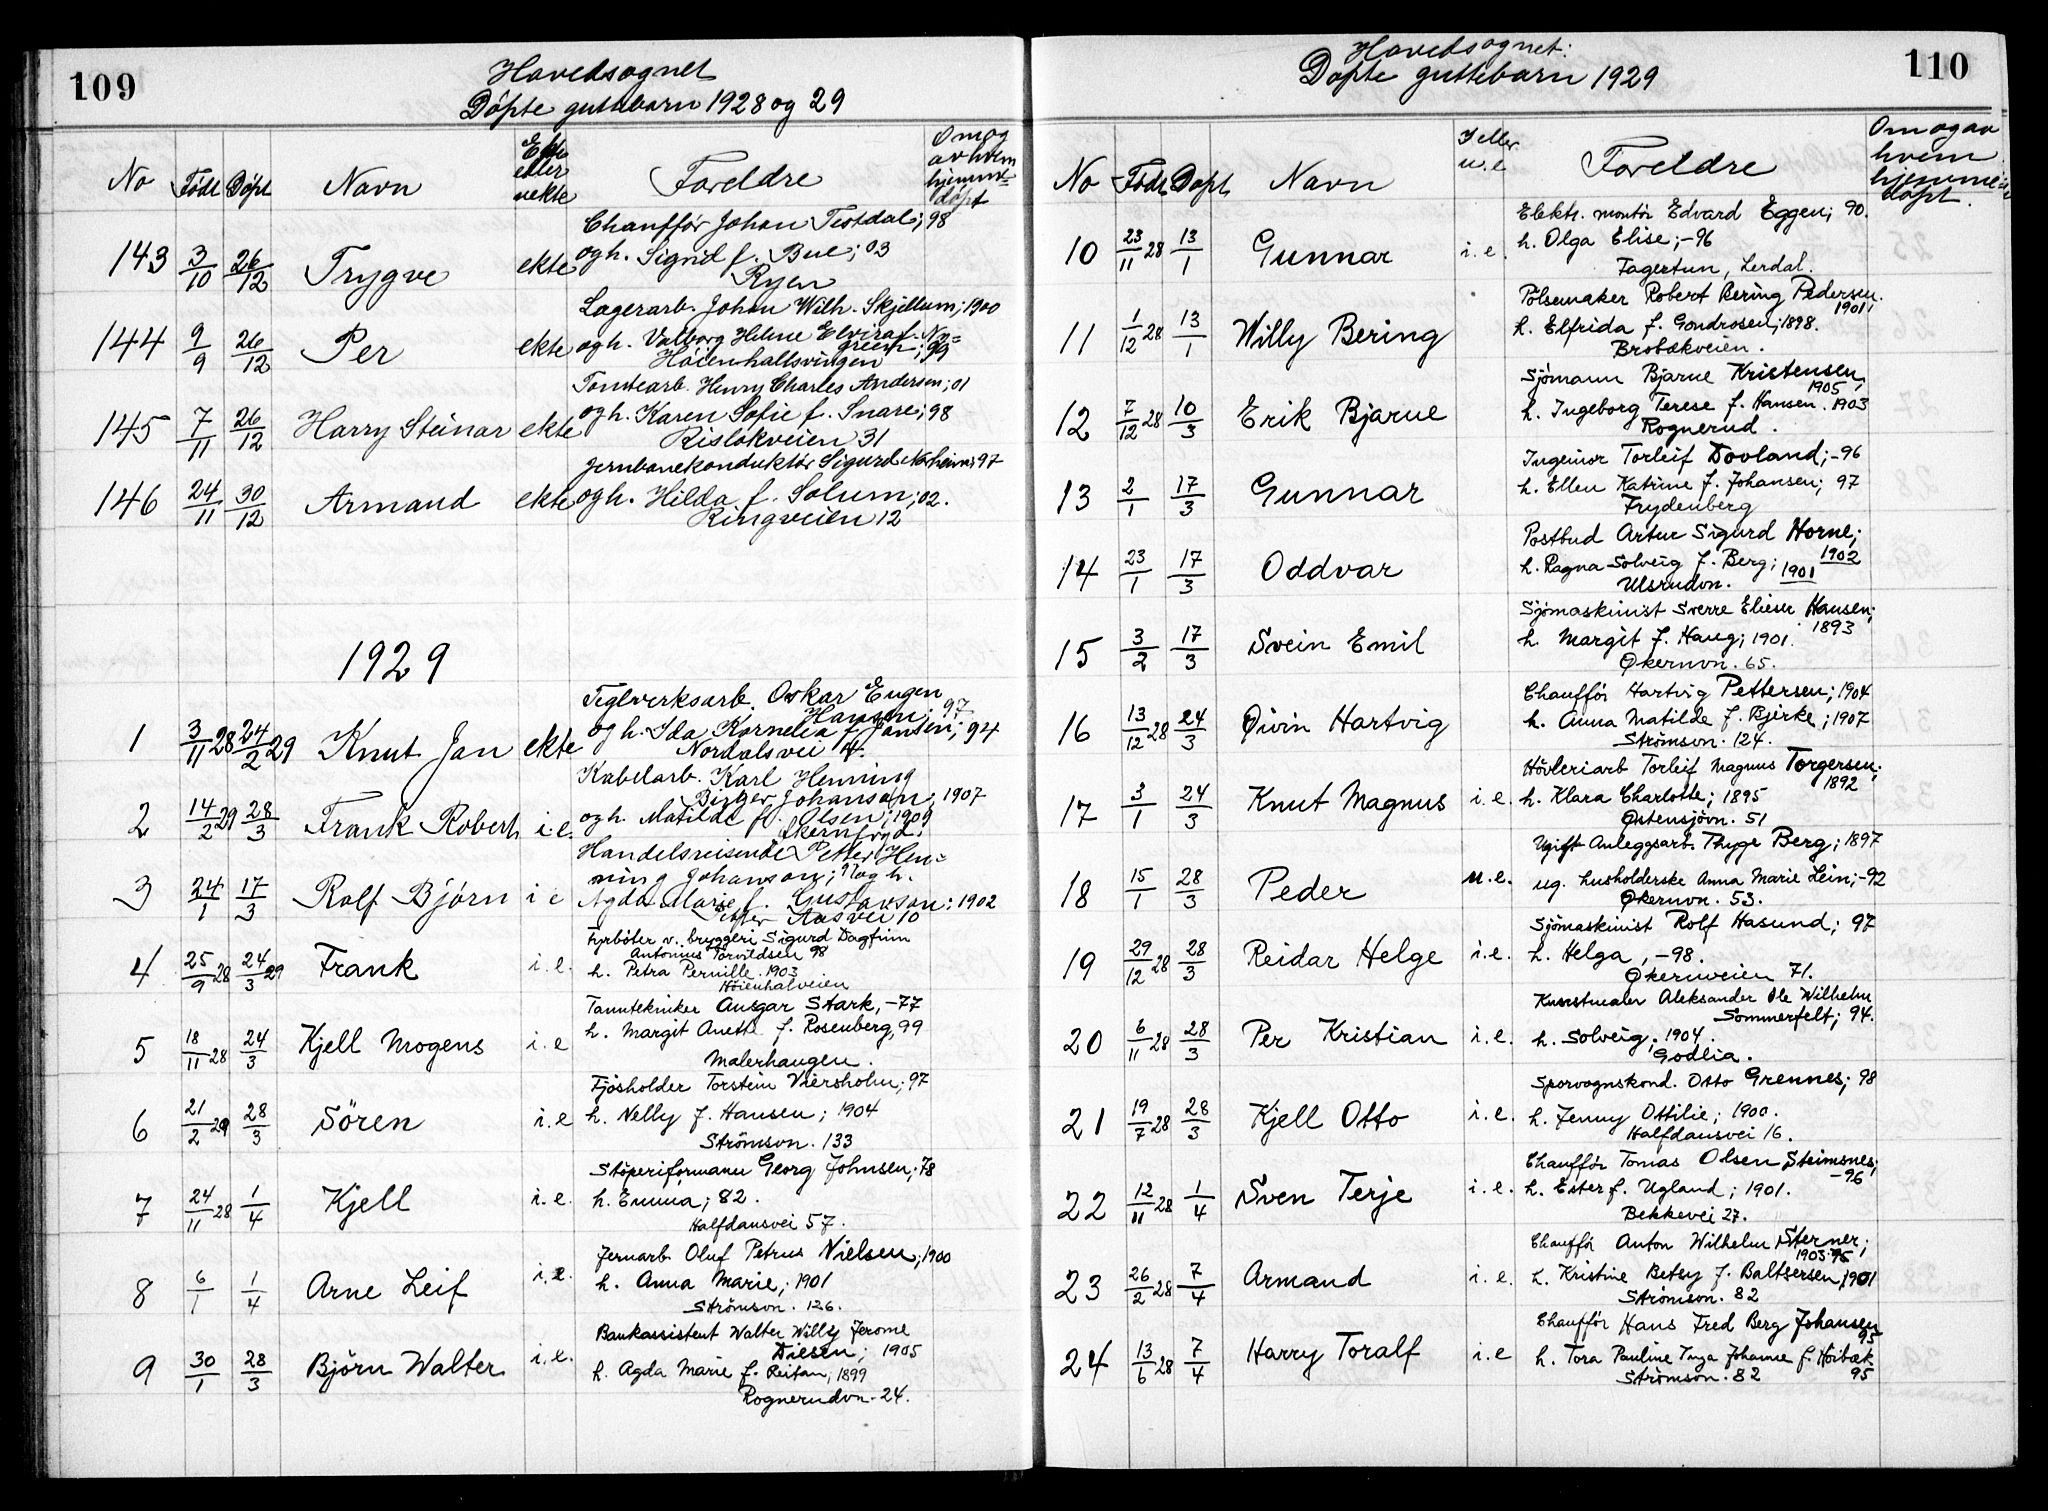 109
Hovedsognet
Döpte guttebarn 1928 og 29
No Födt Döpt Navn Ekte eller uekte Foreldre Om og av hvem hjemme=döpt
143 3/10 26/12 Trygve ekte Chaufför Johan Tio̶tdal; 98
og h. Sigrid f. Bue; 03
Ryen
144 9/9 26/12 Per ekte Lagerarb. Johan Wilh. Skjellum; 1900
og h. Valborg Helene Elvira f. Ny=
green; 99
Höienhallsvingen
145 7/11 26/12 Harry Steinar ekte Tomtearb. Henry Charles Andersen; 01
og h. Karen Sofie f. Snare; 98
Rislökveien 31
146 24/11 30/12 Armand ekte Jernbanekonduktör Sigurd Norheim; 97
og h. Hilda f. Solum; 02.
Ringveien 12
1929
1 3/11 28 24/2 29 Knut Jan ekte Teglverksarb. Oskar Eugen
Hansen; 97
og h. Ida Kornelia f. Jansen; 94
Nordalsvei 4.
2 14/2 29 28/3 Frank Robert i.e. Kabelarb. Karl Henning
Birger Johanson; 1907
og h. Matilde f. Olsen; 1909
Økernfryd.
3 24/1 17/3 Rolf Björn i e Handelsreisende Petter Hen=
ning Johanson; og h.
Agda Marie f. Gustavson: 1902
Peder Aas vei 10
4 25/9 28 24/3 29 Frank i.e. Fyrböter v. bryggeri Sigurd Dagfinn
Antonius Torvildsen 98
h. Petra Pernille. 1903
Höienhalveien
5 18/11 28 24/3 Kjell Mogens i.e Tanntekniker Ansgar Stark, -77
h. Margit Anette f. Rosenberg, 99
Malerhaugen.
6 21/2 29 28/3 Sören i.e Fjösholder Torstein Viersholm; 97
h. Nelly f. Hansen; 1904
Strömsvn. 133
7 24/11 28 1/4 Kjell i.e. Stöperiformann Georg Johnsen; 78
h. Emma; 82.
Halfdansvei 57.
8 6/1 1/4 Arne Leif i.e. Jernarb Oluf Petrus Nielsen; 1900
h. Anna Marie; 1901
Strömsvn. 126.
9 30/1 28/3 Björn Walter i.e. Bankassistent Walter Willy Jerome
Diesen; 1905
h. Agda Marie f. Reitan; 1899
Rognerudvn. 24.
110
Hovedsognet:
Döpte guttebarn 1929
No Födt Döpt Navn I eller u.e Foreldre Om og av hvem hjemme= döpt.
10 23/11 28 13/1 Gunnar i.e. Elektr. montör Edvard Eggen; 90.
h. Olga Elise; -96
Fagertun, Lerdal.
11 1/12 28 13/1 Willy Bering Pölsemaker Robert Bering Pedersen.
1901;
h. Elfrida f. Gondrosen; 1898.
Brobækveien.
12 7/12 28 10/3 Erik Bjarne Sjömann Bjarne Kristensen,
1905
h. Ingeborg Terese f. Hansen. 1903
Rognerud.
13 2/1 17/3 Gunnar Ingeniör Torleif Dovland; -96
h. Ellen Katrine f. Johansen; 97
Frydenberg
14 23/1 17/3 Oddvar Postbud Artur Sigurd Horne;
1902
h. Ragna Solveig f. Berg; 1901
Ulsrudvn.
15 3/2 17/3 Svein Emil Sjömaskinist Sverre Elieser Hansen;
1893
h. Margit f. Haug; 1901.
Økernvn. 65.
16 13/12 28 24/3 Øivin Hartvig Chaufför Hartvig Pettersen; 1904
h. Anna Matilde f. Bjerke; 1907
Strömsvn. 124.
17 3/1 24/3 Knut Magnus i.e. Hövleriarb Torleif Magnus Torgersen;
1892
h. Klara Charlotte; 1895
Østensjövn. 51
18 15/1 28/3 Peder u.e. Ugift Anleggsarb. Thyge Berg; 1897
ug. husholderske Anna Marie Lein; -92
Økernvn. 53.
19 29/12 28 28/3 Reidar Helge i.e. Sjömaskinist Rolf Hasund; 97
h. Helga, -98.
Økernveien 71.
20 6/11 28 28/3 Per Kristian i.e. Kunstmaler Aleksander Ole Wilhelm
Sommerfelt; 94.
h. Solveig; 1904.
Godlia.
21 19/7 28 28/3 Kjell Otto i.e. Sporvognskond. Otto Grennes; 98
h. Jenny Ottilie; 1900.
Halfdansvei 16.
22 12/11 28 1/4 Sven Terje i.e. Chaufför Tomas Olsen Steimsnes;
-96
h. Ester f. Ugland; 1901.
Bekkevei 27.
23 26/2 28 7/4 Armand i.e. Chaufför Anton Wilhelm Sterner;
1903 95
h. Kristine Betsy f. Baltsersen; 1901
Strömsvn. 82
24 13/6 28 7/4 Harry Toralf i.e Chaufför Hans Fred Berg Johansen
95
h. Tora Pauline Inga Johanne f. Höibæk
95
Strömsvn. 82